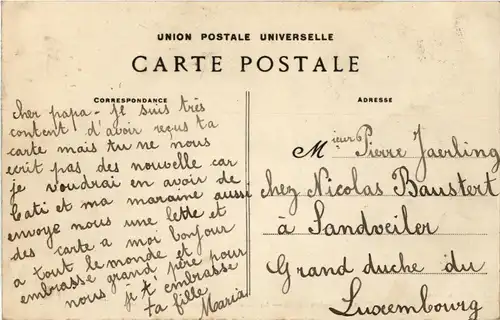 UNION POSTALE UNIVERSELLE
CARTE POSTALE
CORRESPONDANCE
cher papa - je suis très
content d'avoir reçus ta
carte mais tu ne nous
ecrit pas des nouvelle car
je voudrai en avoir de
Cati et ma maraine aussi
envoye nous une lette et
des carte a moi bonjour
a tout le monde et
embrasse grand père pour
nous je t'embrasse
ta fille
Maria
ADRESSE
Mieur Pierre Jaerling
chez Nicolas Baustert
à Sandweiler
Grand duche du
Luxembourg